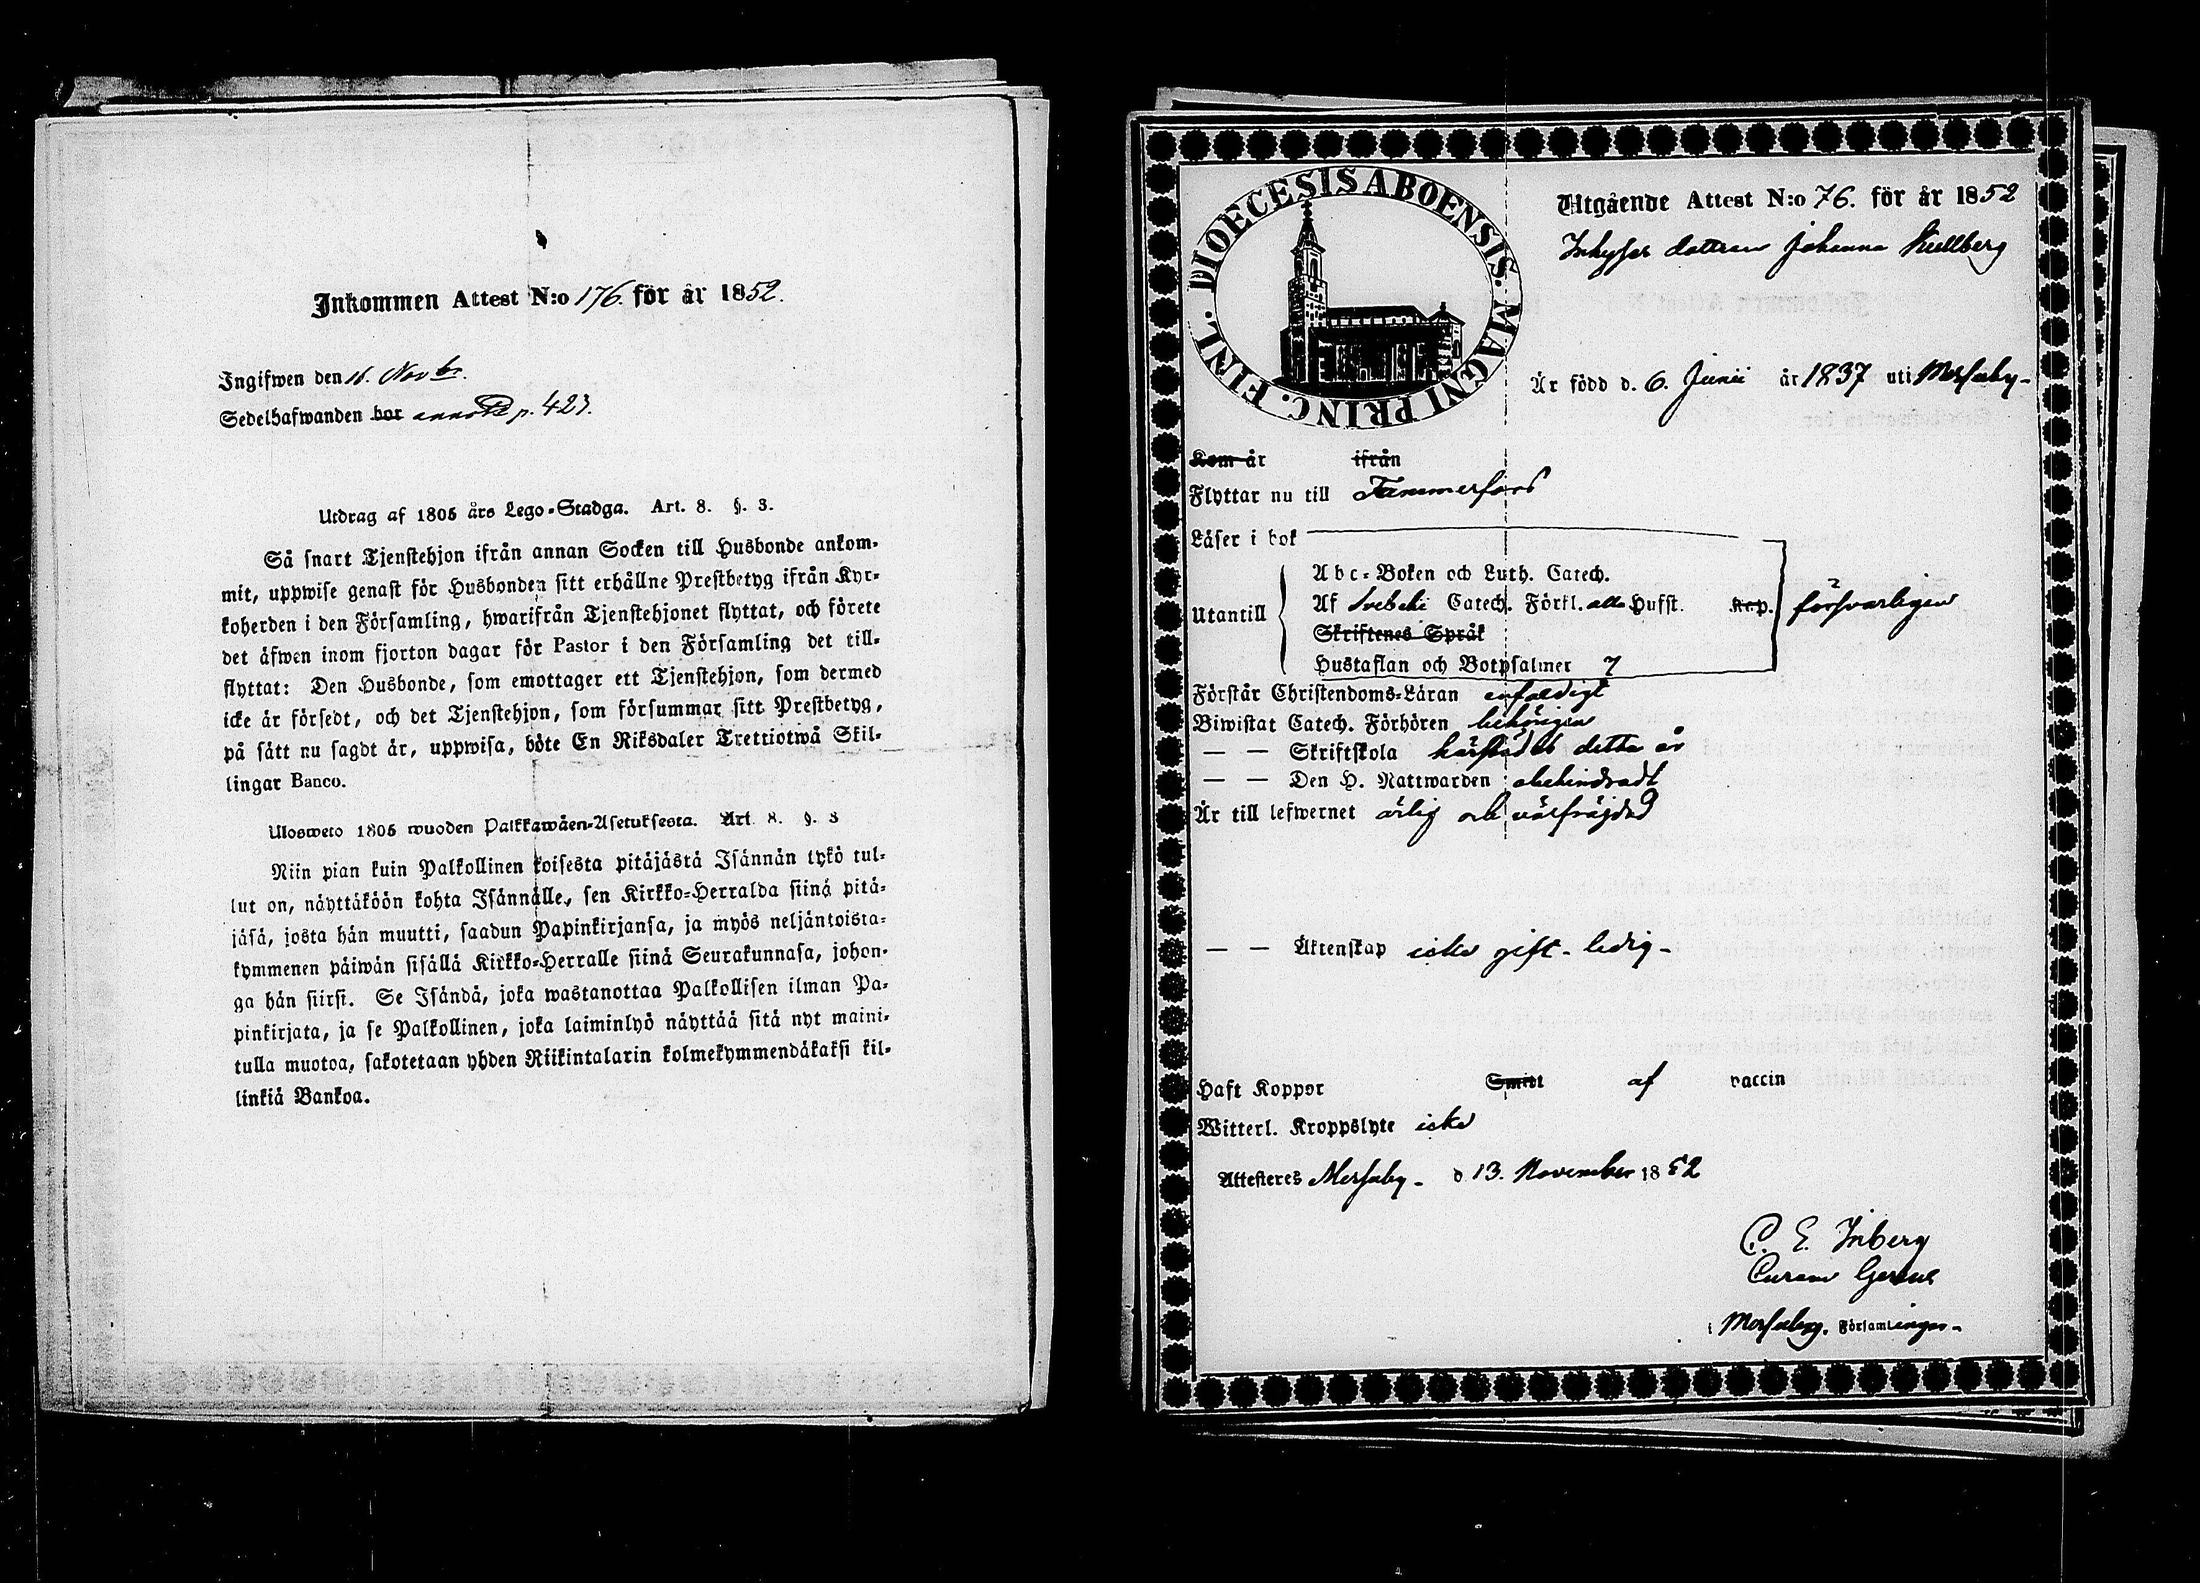 Inkommen Attest N:o 176. för år 1852.
Ingifwen den 16. Novbr.
Sedelhafwanden bor annoterd p. 423.
Utdrag af 1805 års Lego-Stadga. Art. 8. §. 3.
Så snart Tjenstehjon ifrån annan Socken till Husbonde ankom-
mit, uppwise genast för Husbonden sitt erhållne Prestbetyg ifrån Kyr-
koherden i den Församling, hwarifrån Tjenstehjonet flyttat, och förete
det äfwen inom fjorton dagar för Pastor i den Församling det till-
flyttat: Den Husbonde, som emottager ett Tjenstehjon, som dermed
icke är försedt, och det Tjenstehjon, som försummar sitt Prestbetyg,
på sätt nu sagdt är, uppwisa, böte En Riksdaler Trettiotwå Skil-
lingar Banco.
Ulosweto 1805 wuoden Palkkawäen-Asetuksesta. Art. 8. §. 3
Niin pian kuin Palkollinen toisesta pitäjästä Isännän tykö tul-
lut on, näyttäköön kohta Isännälle, sen Kirkko-Herralda siinä pitä-
jäsä, josta hän muutti, saadun Papinkirjansa, ja myös neljäntoista-
kymmenen päiwän sisällä Kirkko-Herralle siinä Seurakunnasa, johon-
ga hän siirsi. Se Isändä, joka wastanottaa Palkollisen ilman Pa-
pinkirjata, ja se Palkollinen, joka laiminlyö näyttää sitä nyt maini-
tulla muotoa, sakotetaan yhden Riikintalarin kolmekymmendäkaksi kil-
linkiä Bankoa.
DIOECESIS ABOENSIS. MAGNI PRINC. FINL.
Utgående Attest N:o 76. för år 1852
Inhyses dottren Johanna Kullberg
Är född d. 6. Junii år 1837 uti Messuby-
Kom år ifrån
Flyttar nu till Tammerfors
Läser i bok
Abc-Boken och Luth. Catech.
Utantill Af Svebelii Catech. Förkl. alla Hufst. Kap. försvarligen
Skriftenes Språk
Hustaflan och Botpsalmer 7
Förstår Christendoms-Läran enfaldigt
Biwistat Catech. Förhören behörigen
— — Skriftskola härstädes detta år
— — Den H. Nattwarden obehindradt
Är till lefwernet ärlig och välfräjdad
— — Äktenskap icke gift - ledig -
Haft Koppor Smitt af vaccin
Witterl. Kroppslyte icke
Attesteres Messuby - d 13. November 1852
C. E. Inberg
Curam Gerens
i Messuby. Församlingar-